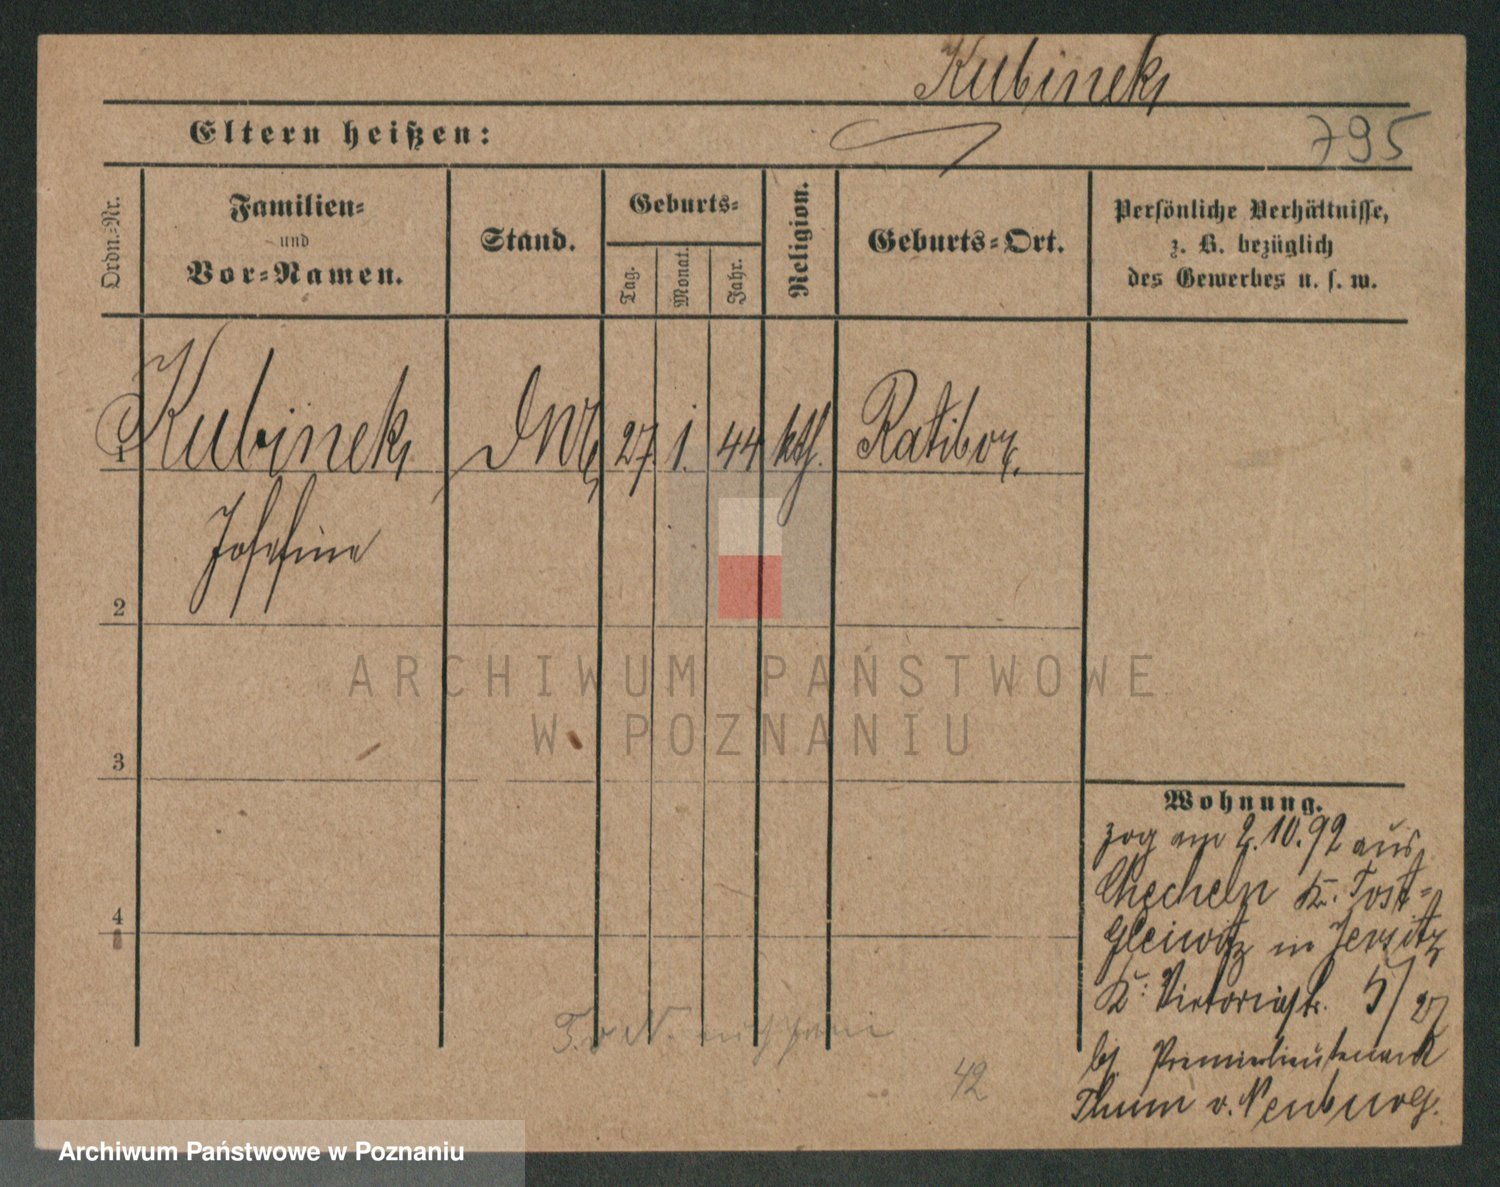 Kubinek
Eltern heißen:
795
Ordn.-Nr.
Familien-
und
Vor-Namen.
Stand.
Geburts-
Tag.
Monat.
Jahr.
Religion.
Geburts-Ort.
Persönliche Verhältnisse,
z. B. bezüglich
des Gewerbes u. s. w.
1
Kubinek
27. 1. 44 kth. Ratibor.
Josefine
2
ARCHIWUM PAŃSTWOWE
W POZNANIU
3
Wohnung.
zog am 2.10.92 aus
Checheln Kr. Tost-
Gleiwitz in Jersitz
Victoriastr. 5/
bei Premierlieutenant
Thum v. Neuburg.
4
42
Archiwum Państwowe w Poznaniu